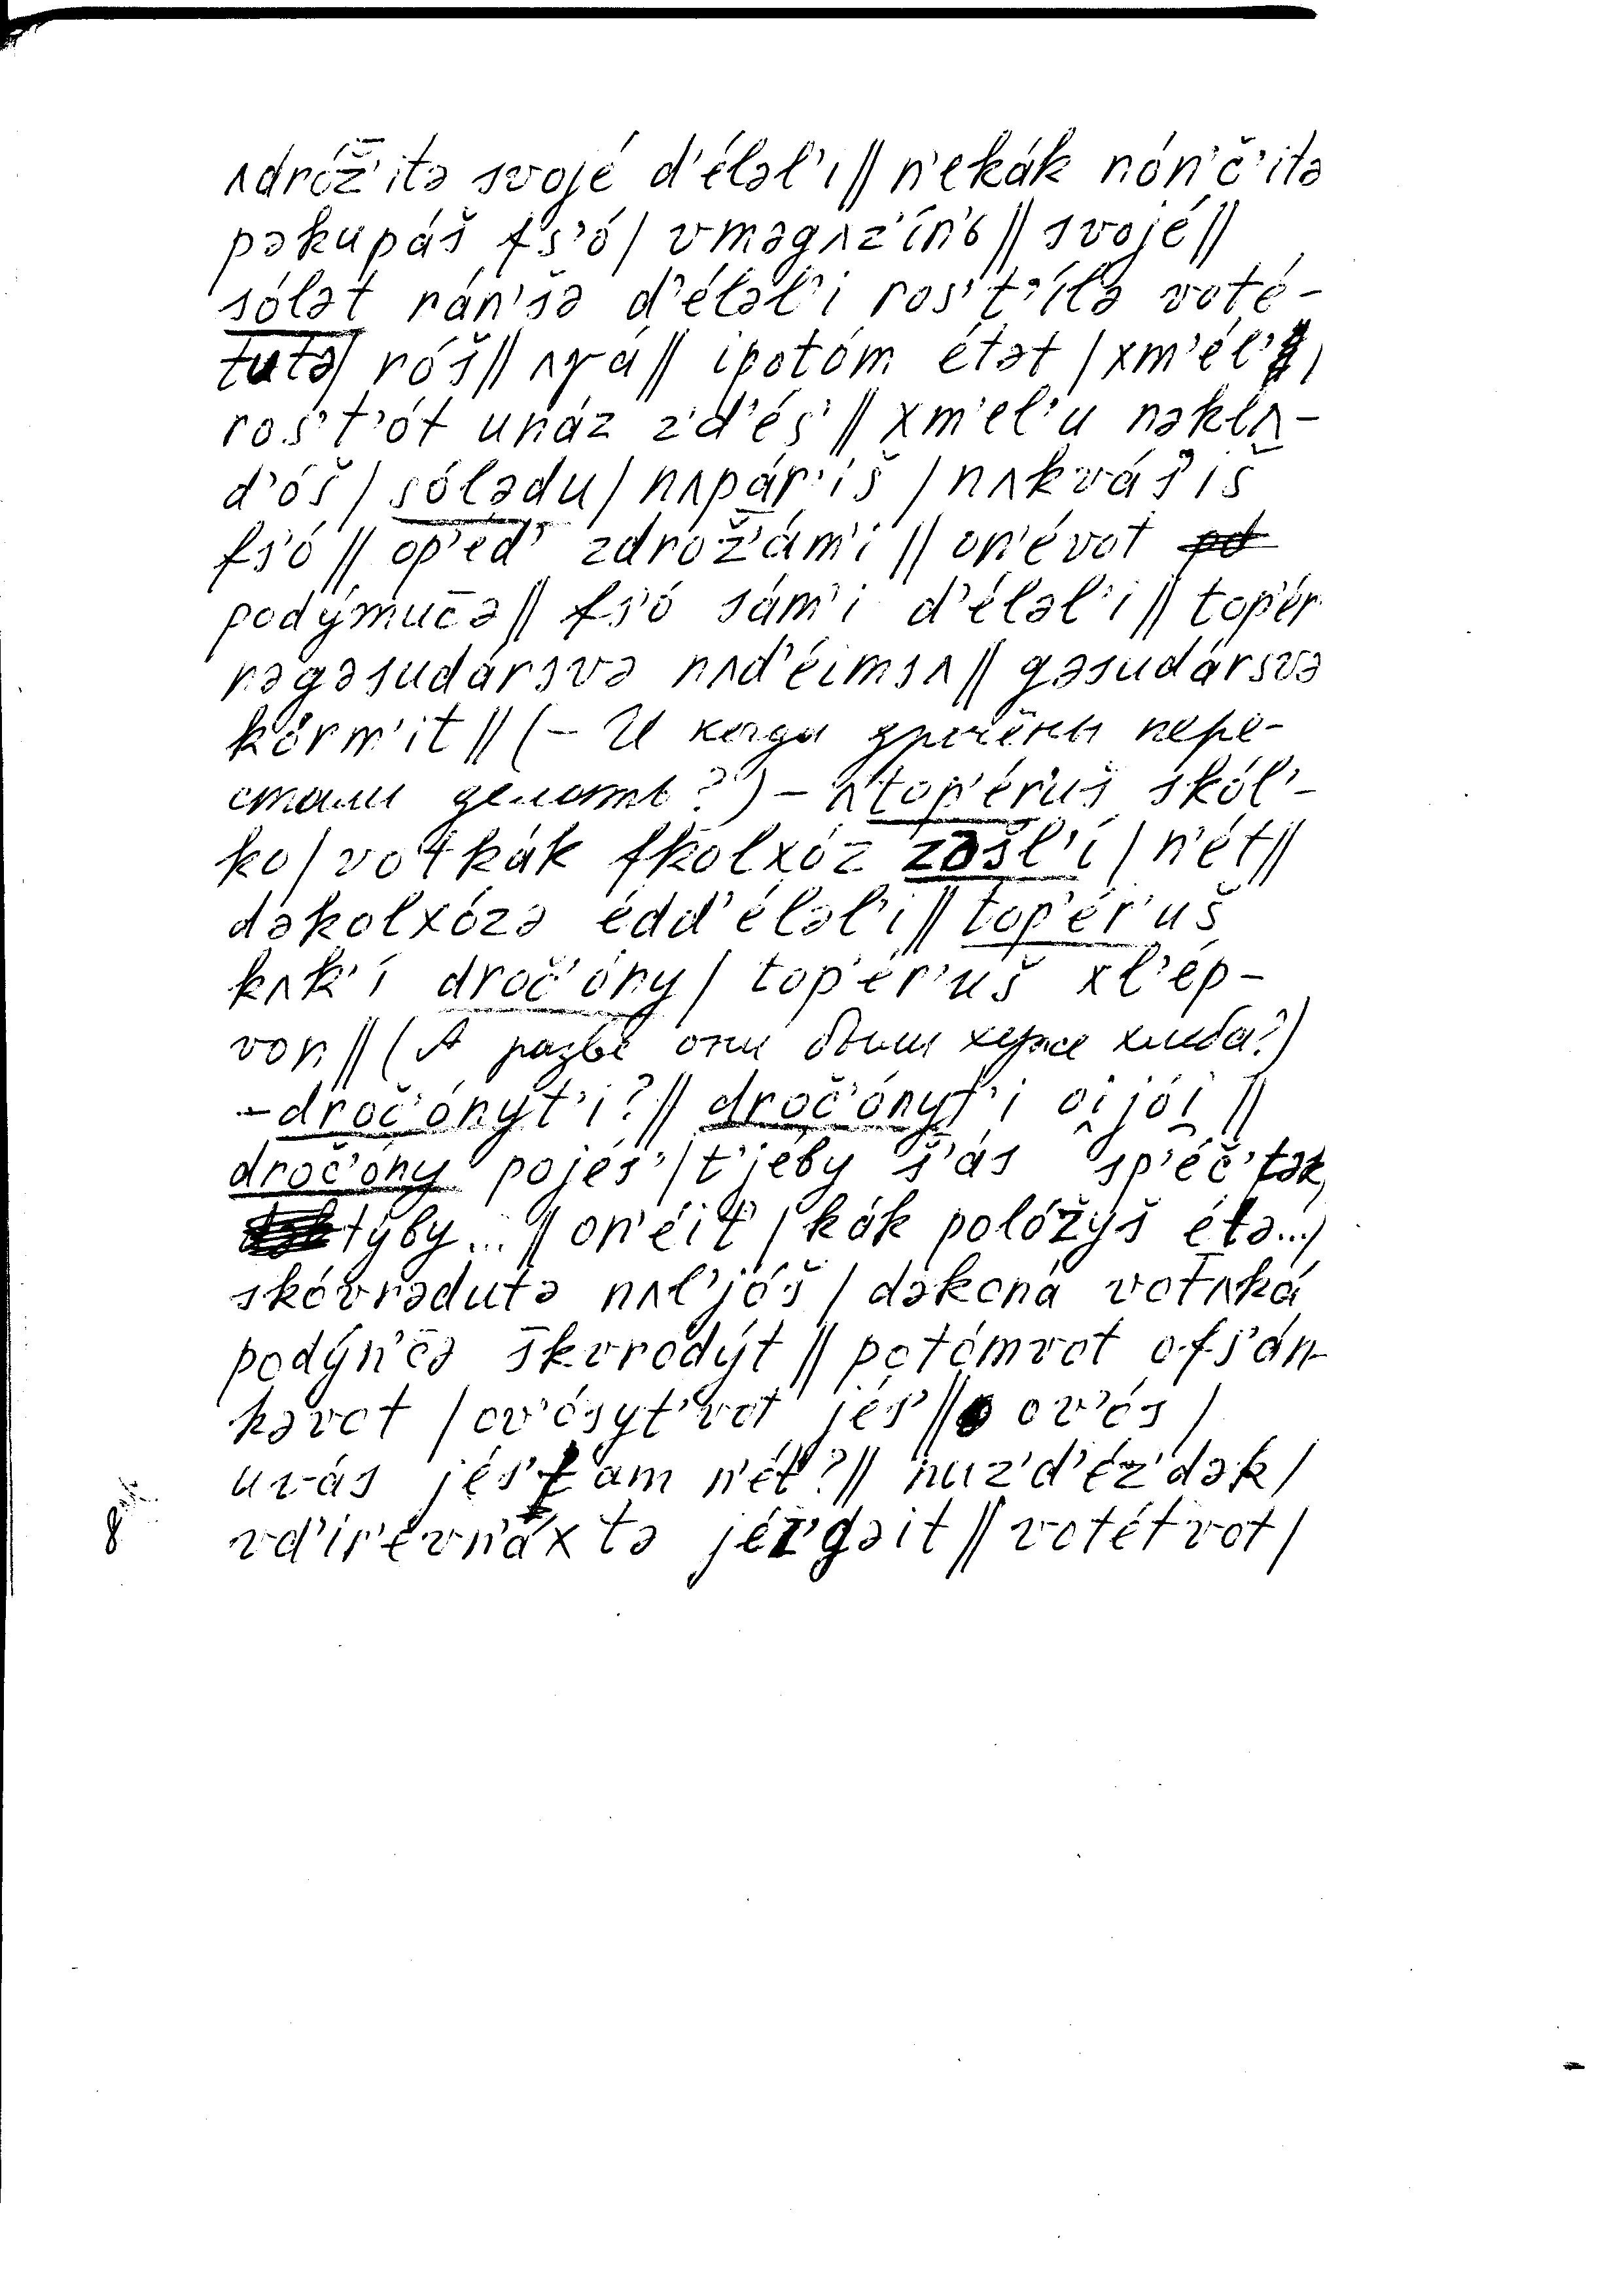 ʌdróž̄'itə svojé d'éləl'i || n'ekák nón'č'itə
pəkupáš fs'ó | vməgʌz'ín'ь || svojé ||
sólət rán'šə d'éləl'i ros't'ílə voté-
tutə | róš || ʌγá || ipotóm étət | xm'él'
ros't'ót unáz z'd'és' || xm'el'u nəklʌ-
d'óš | sólədu | nʌpár'iš | nʌkvás'iš
fs'ó || op'éd' zdrož'ám'i || on'évot
podýmuc̄ə || fs'ó sám'i d'éləl'i || top'ér
nəgəsudársvə nʌd'éimsʌ || gəsudársvə
kórm'it || (– И когда дрочёны пере-
стали делать?) – ʌtop'ér'uš skól'-
ko | votkák fkolxóz zošl'í | n'ét ||
dəkolxózə édd'éləl'i || top'ér'uš
kʌk'í droč'óny | top'ér'uš xl'ép-
von || (А разве они были хуже хлеба?)
– droč'ónyt'i? || droč'ónyt'i oi jói ||
droč'óny pojés' | t'jéby š'ás sp'éč'tək,
týby... || on'éit | kák polóžyš étə... |
skóvrədutə nʌl'jóš | dəkoná votʌká
podýn'c̄ə škvrodýt || potómvot ofs'án-
kəvot | ov'ósyt'vot jés' || ov'ós |
uvás jés't am n'ét? || nuz'd'éz'dək |
vd'ir'evn'áxtə jéz'gəit || votétvot |